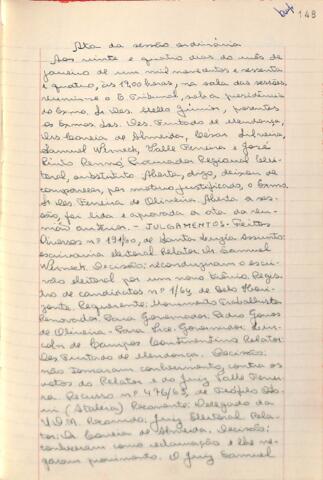 148
Ata da sessão ordinária
Aos vinte e quatro dias do mês de
janeiro de um mil novecentos e sessenta
e quatro, às 17,00 horas, na sala das sessões,
reuniu-se o E. Tribunal, sob a presidência
do Exmo. Sr. Des. Mello Júnior, presentes
os Exmos. Srs. Des. Furtado de Mendonça,
Drs. Correia de Almeida, César Silveira,
Samuel Werneck, Valle Ferreira e José
Pinto Renó, Procurador Regional Elei-
toral, substituto. Aberta, digo, deixou de
comparecer, por motivo justificado, o Exmo.
Sr. Des. Ferreira de Oliveira. Aberta a ses-
são, foi lida e aprovada a ata da reu-
nião anterior. - JULGAMENTOS - Feitos
Diversos nº 191/60, de Santa Luzia. Assunto:
escrivania eleitoral. Relator: Dr. Samuel
Werneck. Decisão: reconduziram o escri-
vão eleitoral por um novo biênio. Regis-
tro de candidatos nº 1/64, de Belo Hori-
zonte. Requerente: Movimento Trabalhista
Renovador. Para Governador: Pedro Gomes
de Oliveira - Para Vice-Governador: Lin-
coln de Campos Continentino. Relator:
Des. Furtado de Mendonça. Decisão:
não tomaram conhecimento, contra os
votos do Relator e do Juiz Valle Ferrei-
ra. Recurso nº 476/63, de Teófilo Oto-
ni (Ataléia). Recorrente: Delegado da
U.D.N. Recorrido: Juiz Eleitoral. Rela-
tor: Dr. Correia de Almeida. Decisão:
conheceram como reclamação e lhe ne-
garam provimento. O Juiz Samuel